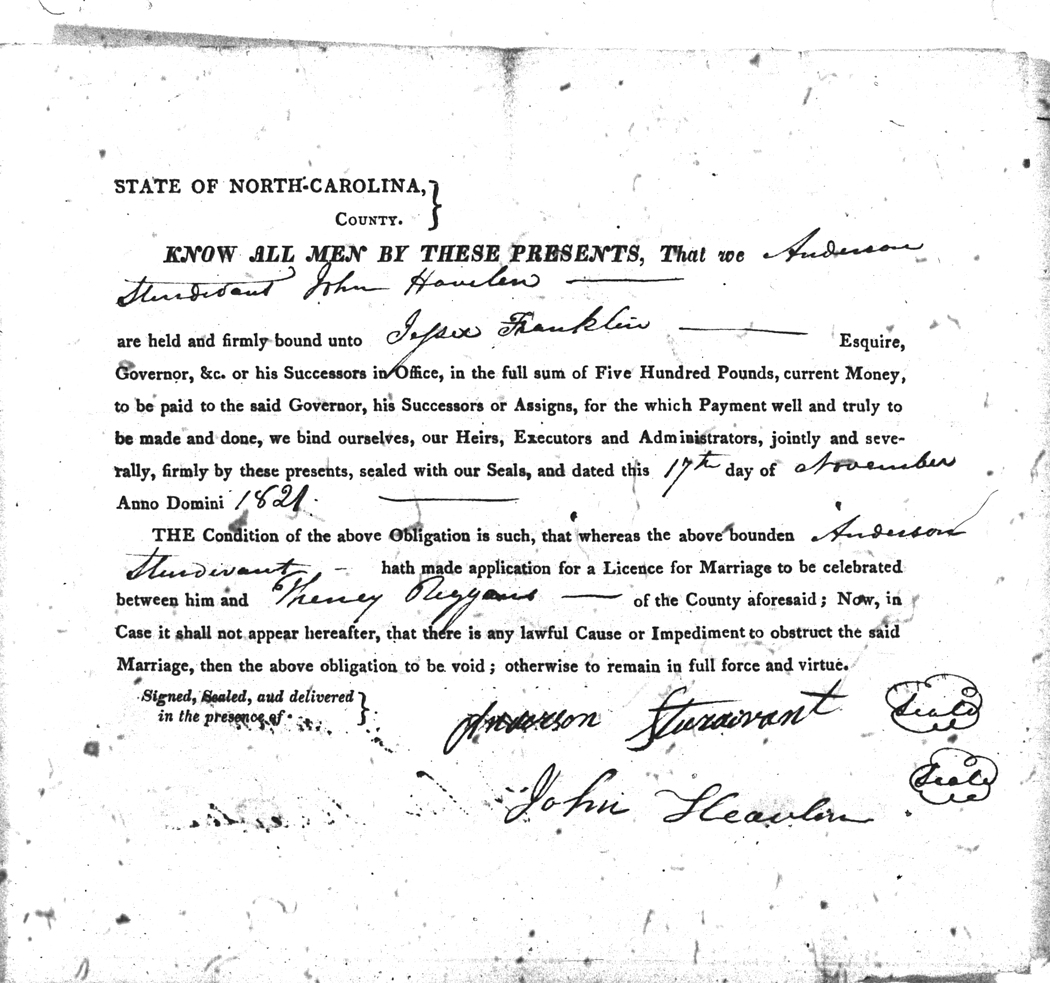 STATE OF NORTH-CAROLINA,
COUNTY.
KNOW ALL MEN BY THESE PRESENTS, That we Anderson
Sturdivant John Havelen
are held and firmly bound unto Jesse Franklin Esquire,
Governor, &c. or his Successors in Office, in the full sum of Five Hundred Pounds, current Money,
to be paid to the said Governor, his Successors or Assigns, for the which Payment well and truly to
be made and done, we bind ourselves, our Heirs, Executors and Administrators, jointly and seve-
rally, firmly by these presents, sealed with our Seals, and dated this 17th day of November
Anno Domini 1821.
THE Condition of the above Obligation is such, that whereas the above bounden Anderson
Sturdivant hath made application for a Licence for Marriage to be celebrated
between him and of the County aforesaid; Now, in
Case it shall not appear hereafter, that there is any lawful Cause or Impediment to obstruct the said
Marriage, then the above obligation to be void; otherwise to remain in full force and virtue.
Signed, Sealed, and delivered
in the presence of
Anderson Sturdivant Seal
John Heavlin Seal